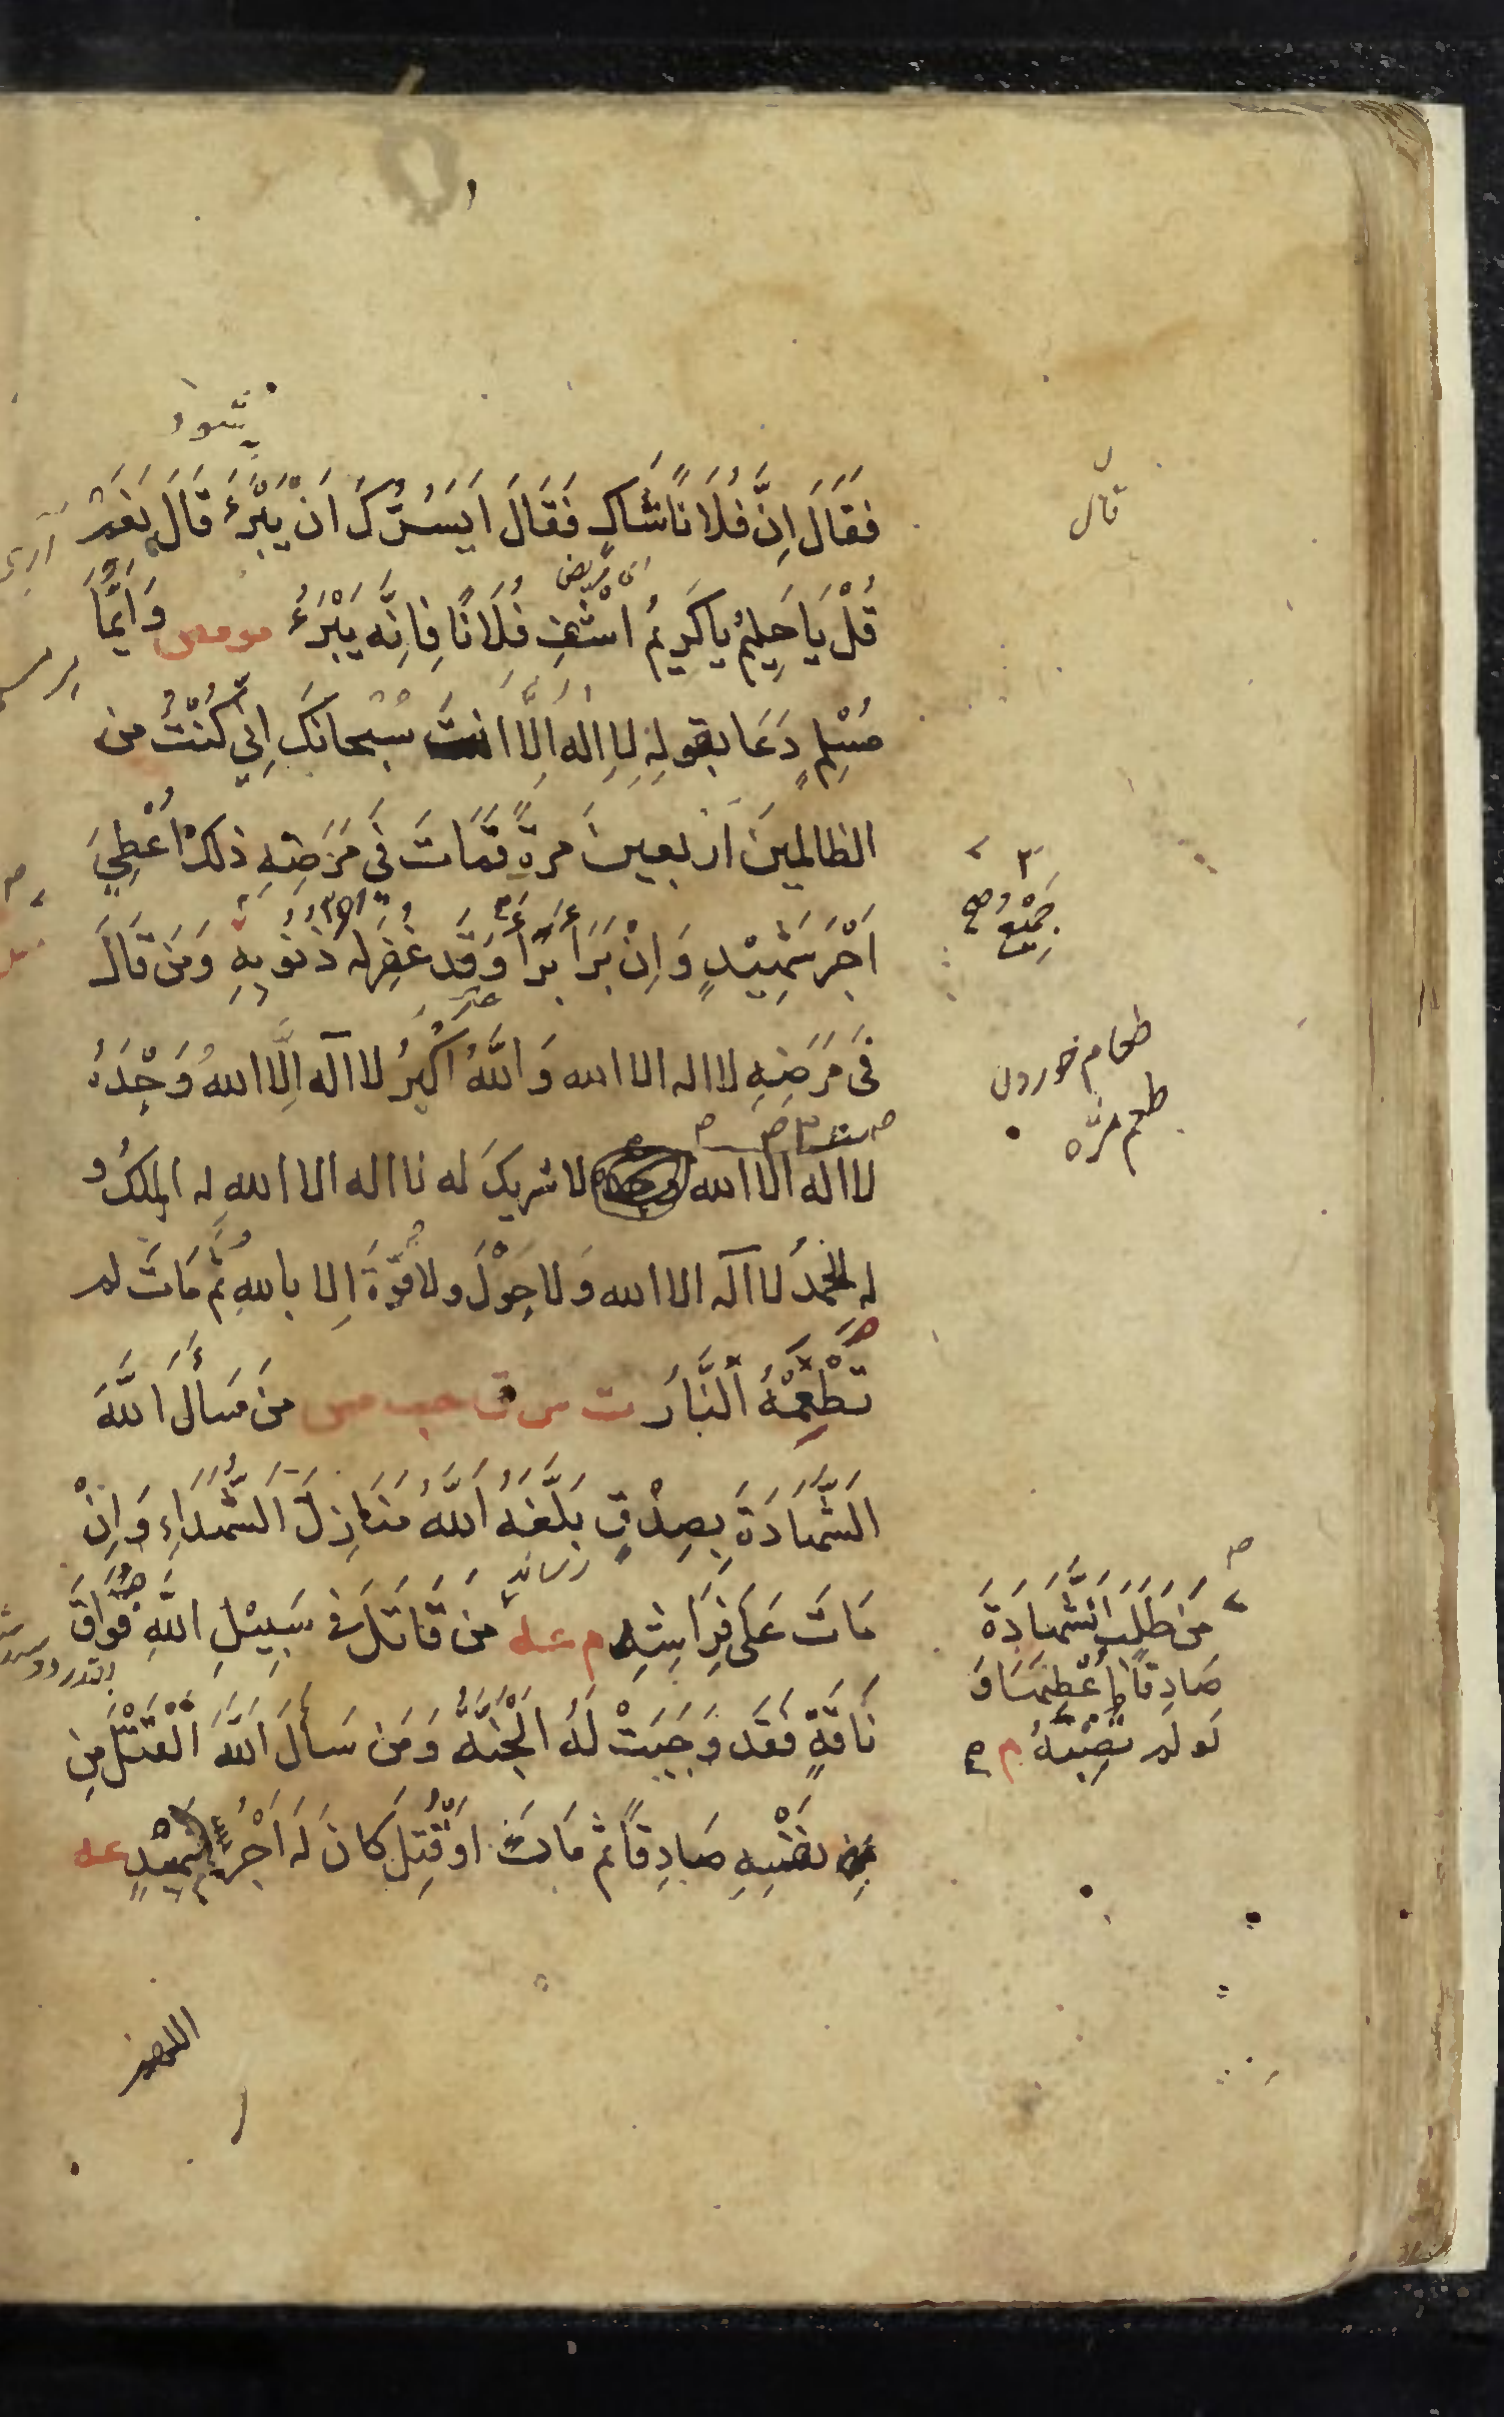 شود
فَقَالَ اِنَّ فُلَانًا شَاكٍ فَقَالَ اَيَسُرُّكَ اَنْ يَبْرَءَ قَالَ نَعَمْ
آری
قال
ای مریض
قُلْ يَا حَلِيمُ يَا كَرِيمُ اشْفِ فُلَانًا فَاِنَّه يَبْرَءُ مو مص وَاَيُّمَا
مُسْلِمٍ دَعَا بِقَولِهِ لَا اِلٰهَ اِلَّا اَنْتَ سُبْحَانَكَ اِنِّي كُنْتُ من
الظالمينَ اَرْبعينَ مرةً فمَاتَ فِي مَرَضِهِ ذلكَ اُعْطِيَ
اَجْرَ شَهِيْدٍ وَاِنْ بَرَأَ بَرَأَ وَقَد غُفِرَ لَه ذُنُوبِهِ وَمَن قَالَ
جَمِيْعُ
فِي مَرَضِهِ لا اله الا الله وَاللَّهُ اَكْبَرُ لا اله اِلَّا اللهُ وَحْدَهُ
طعام خوردن
طعم مزه
لا اله الا الله وحده لا شريكَ له لا اله الا الله له الملكُ و
له الحَمدُ لا اله الا الله وَلا حَوْلَ ولا قُوَّةَ اِلا باللهِ ثم مَاتَ لم
تَطْعَمْهُ النَّارُ ت س ق حب مس مَن سَأَلَ اللَّهَ
الشَّهَادَةَ بِصِدْقٍ بَلَّغَهُ اللَّهُ مَنَازِلَ الشُّهَدَاءِ وَاِنْ
رساند
مَاتَ عَلَى فِرَاشِهِ م عه مَن قَاتَلَ فِي سَبِيْلِ اللَّهِ فُوَاقَ
نَاقَةٍ فَقَد وَجَبَتْ لَهُ الْجَنَّةُ وَمَن سَأَلَ اللَّهَ الْقَتْلَ مِن
مِن نفْسِهِ صَادِقًا ثم مَاتَ اَوْ قُتِلَ كَانَ لَه اَجْرُ شَهِيْدٍ عه
مَن طَلَبَ الشَّهَادَةَ
صَادِقًا اُعْطِيَهَا وَ
لَو لم تُصِبْهُ م